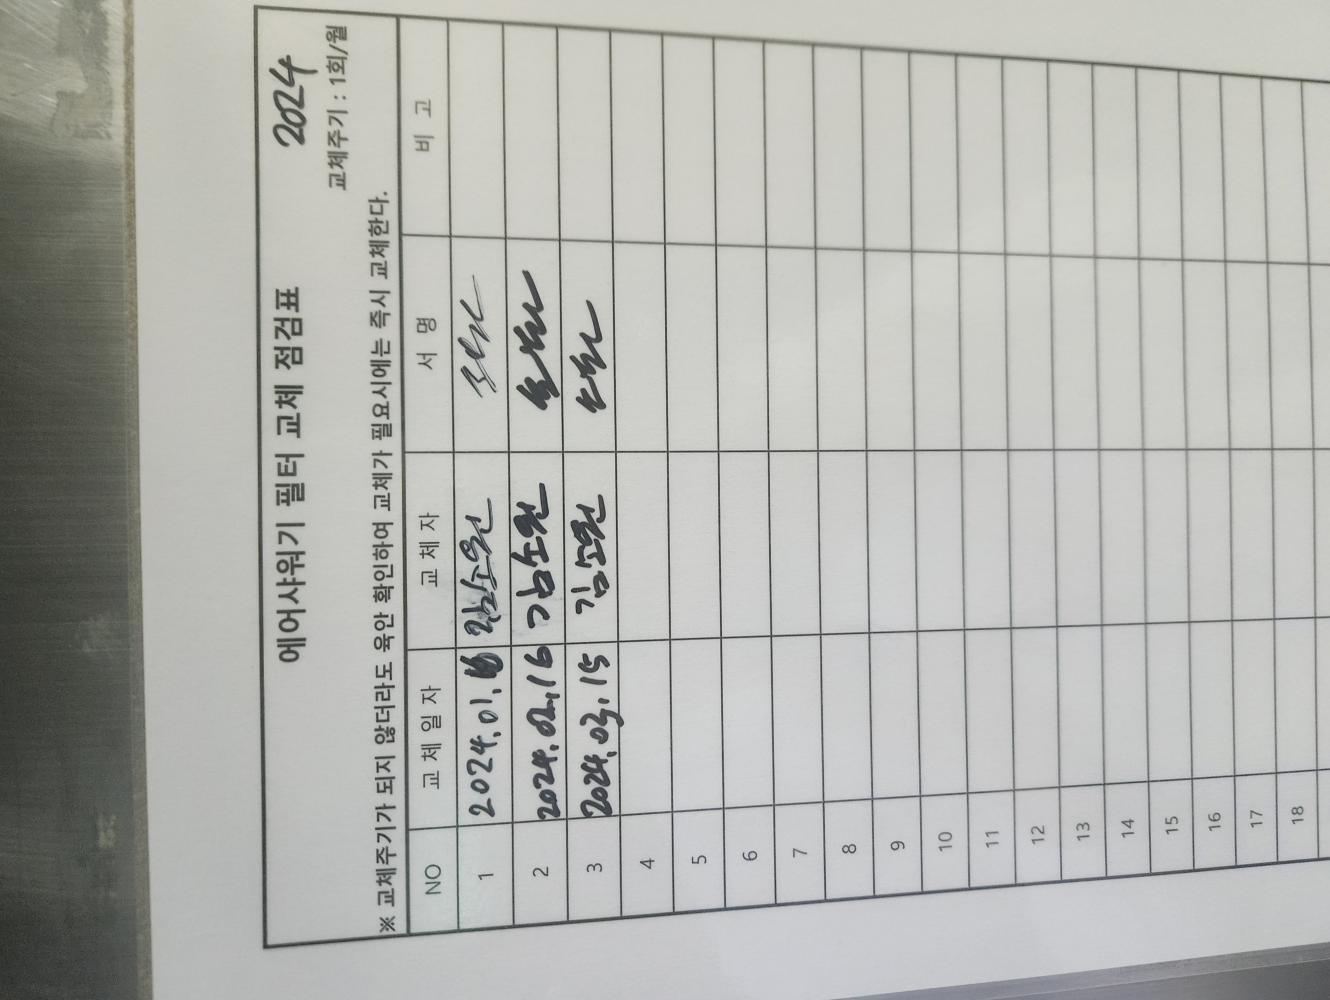 에어샤워기 필터 교체 점검표 2024
교체주기 : 1회/월
※ 교체주기가 되지 않더라도 육안 확인하여 교체가 필요시에는 즉시 교체한다.
NO 교체일자 교체자 서명 비고
1 2024.01. 김소원
2 2024.02.16 김소원
3 2024.03.15 김소원
4
5
6
7
8
9
10
11
12
13
14
15
16
17
18